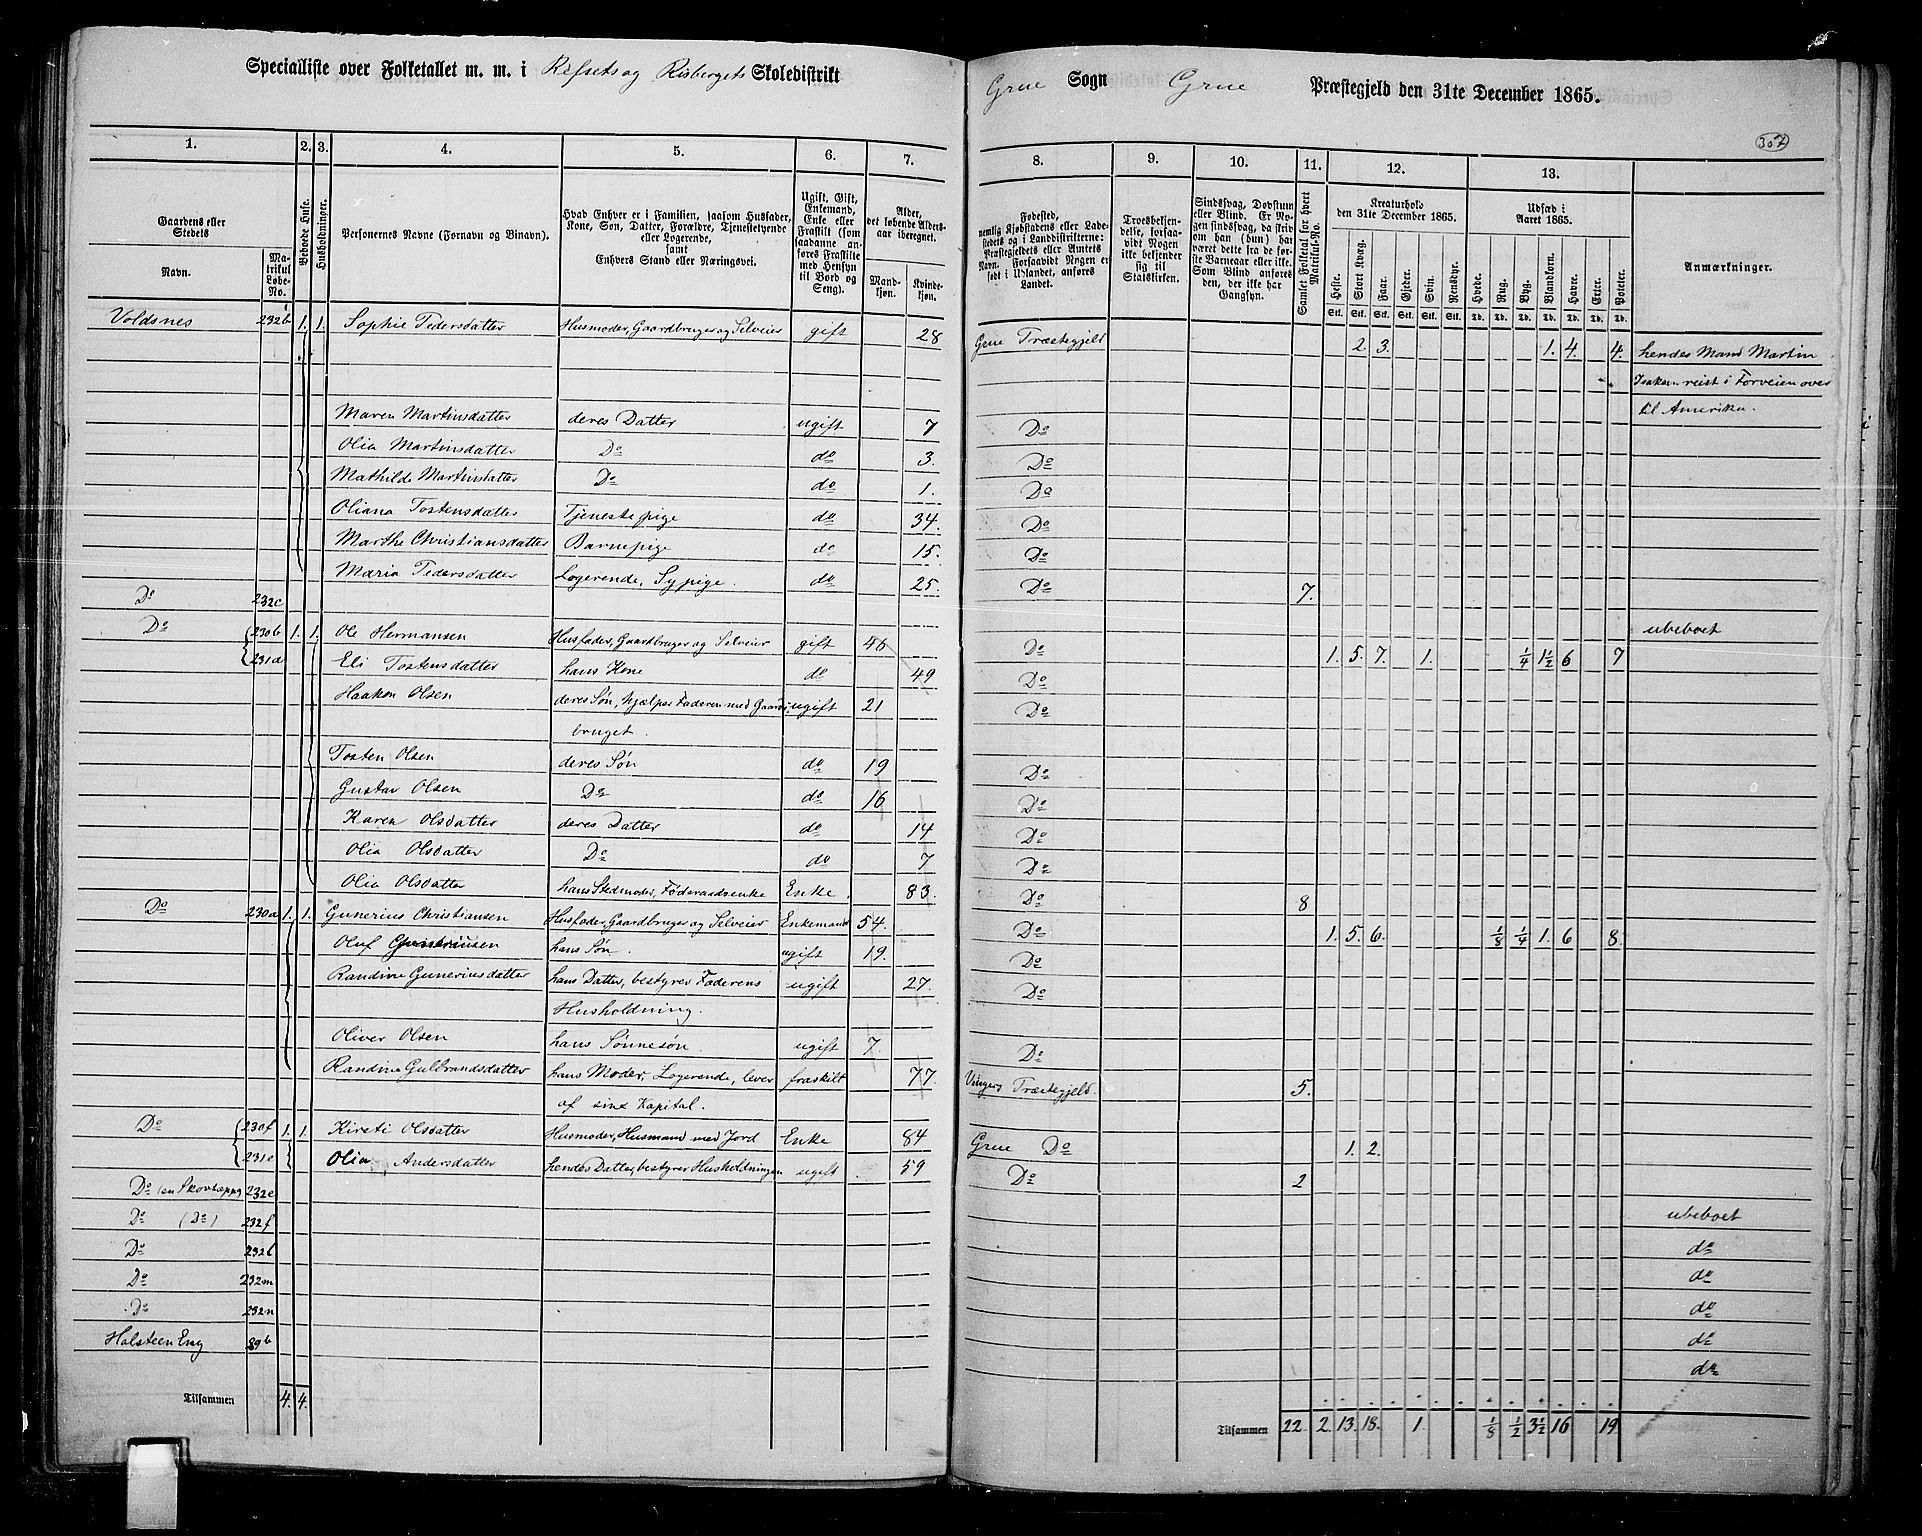 Specialliste over Folketallet m. m. i Refsets og Risbergets Skoledistrikt Grue Sogn Grue Præstegjeld den 31te December 1865.
307
1. 2. 3. 4. 5. 6. 7. 8. 9. 10. 11. 12. 13.
Gaardens eller Stedets
Navn.
Matrikul Løbe-No.
Beboede Huse.
Husholdninger.
Personernes Navne (Fornavn og Binavn).
Hvad Enhver er i Familien, saasom Husfader, Kone, Søn, Datter, Forældre, Tjenestetyende eller Logerende,
samt
Enhvers Stand eller Næringsvei.
Ugift, Gift, Enkemand, Enke eller Fraskilt (som saadanne anføres Fraskilte med Hensyn til Bord og Seng).
Alder, det løbende Aldersaar iberegnet.
Mandkjøn.
Kvindekjøn.
Fødested,
nemlig Kjøbstadens eller Ladestedets og i Landdistrikterne: Præstegjeldets eller Amtets Navn. Forsaavidt Nogen er født i Udlandet, anføres Landet.
Troesbekjendelse, forsaavidt Nogen ikke bekjender sig til Statskirken.
Sindssvag, Døvstum eller Blind. Er Nogen sindssvag, da skrives om han (hun) har været dette fra de første Barneaar eller ikke. Som Blind anføres den, der ikke har Gangsyn.
Samlet Folketal for hvert Matrikul-No.
Kreaturhold den 31te December 1865.
Heste. Stort Kvæg. Faar. Gjeder. Svin. Rensdyr.
Stk. Stk. Stk. Stk. Stk. Stk.
Udsæd i Aaret 1865.
Hvede. Rug. Byg. Blandkorn. Havre. Erter. Poteter.
Td. Td. Td. Td. Td. Td. Td.
Anmærkninger.
Voldsnes 232b 1. 1. Sophie Pedersdatter Husmoder, Gaardbruger og Selveier gift 28 Grue Præstegjeld 2. 3. 1. 4. 4. hendes Mand Martin
Isaksen reist i Forveien over
til Amerika.
Maren Martinsdatter deres Datter ugift 7 Do
Olia Martinsdatter Do do 3. Do
Mathilde Martinsdatter Do do 1. Do
Oliana Tostensdatter Tjenestepige do 34. Do
Marthe Christiansdatter Barnepige do 15. Do
Maria Pedersdatter Logerende, Sypige. do 25. Do 7.
Do 232c ubeboet
Do 230b 1. 1. Ole Hermansen Husfader, Gaardbruger og Selveier gift 46 Do 1. 5. 7. 1. 1/4 1 1/2 6 7
231a Eli Tostensdatter hans Kone do 49 Do
Haakon Olsen deres Søn, hjælper Faderen med Gaards- ugift 21 Do
bruget.
Tosten Olsen deres Søn do 19 Do
Gustav Olsen Do do 16 Do
Karen Olsdatter deres Datter do 14 Do
Olia Olsdatter Do do 7 Do
Olia Olsdatter hans Stedmoder, Føderaadsenke Enke. 83. Do 8
Do 230a 1. 1. Gunerius Christiansen Husfader, Gaardbruger og Selveier Enkemand 54. Do 1. 5. 6. 1/8 1/4 1. 6 8.
Oluf Guneriusen hans Søn. ugift 19. Do
Randine Guneriusdatter hans Datter, bestyrer Faderens ugift 27 Do
Husholdning.
Oliver Olsen hans Sønnesøn. ugift 7. Do
Randine Gulbrandsdatter hans Moder, Logerende, lever fraskilt 77. Vingers Præstegjeld. 5.
af sine Kapital.
Do 230f 1. 1. Kirsti Olsdatter Husmoder, Husmand med Jord Enke 84 Grue Do 1. 2.
231e Olia Andersdatter hendes Datter, bestyrer Husholdningen ugift 59 Do 2
Do (en Skovtæppe 232e ubeboet
Do (Do) 232f do
Do 232l do
Do 232m do
Do 232n do
Holsteen Eng 89b do
Tilsammen 4. 4. Tilsammen 22. 2. 13. 18. 1. 1/8 1/2 3 1/2 16 19.